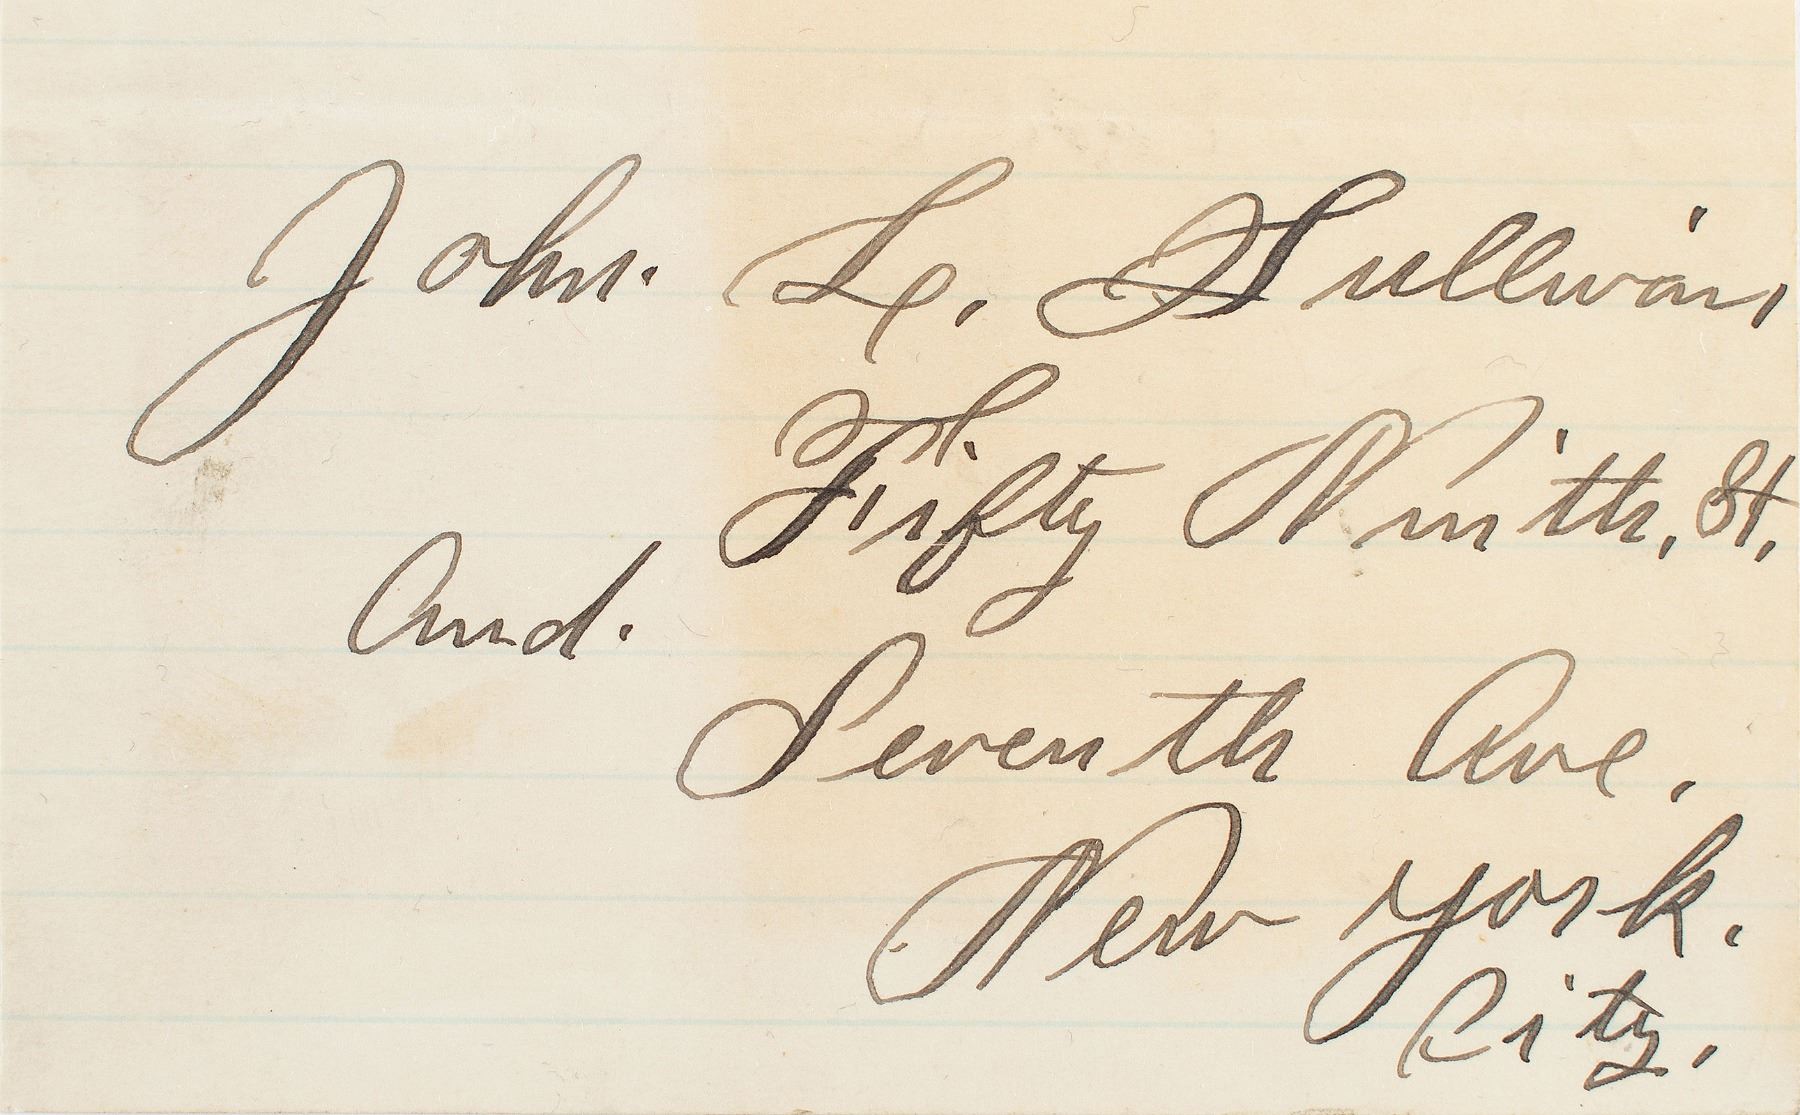 John. L. Sullivan,
Fifty Ninth, St.
And.
Seventh Ave.
New York.
City.